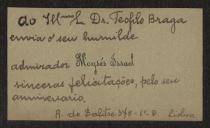 Ao Ill.mo Sr. Dr. Teofilo Braga
envia o seu humilde
admirador Moysés Israel
sinceras felicitações, pelo seu
anniversario
R. do Salitre 348-1º D. Lisboa